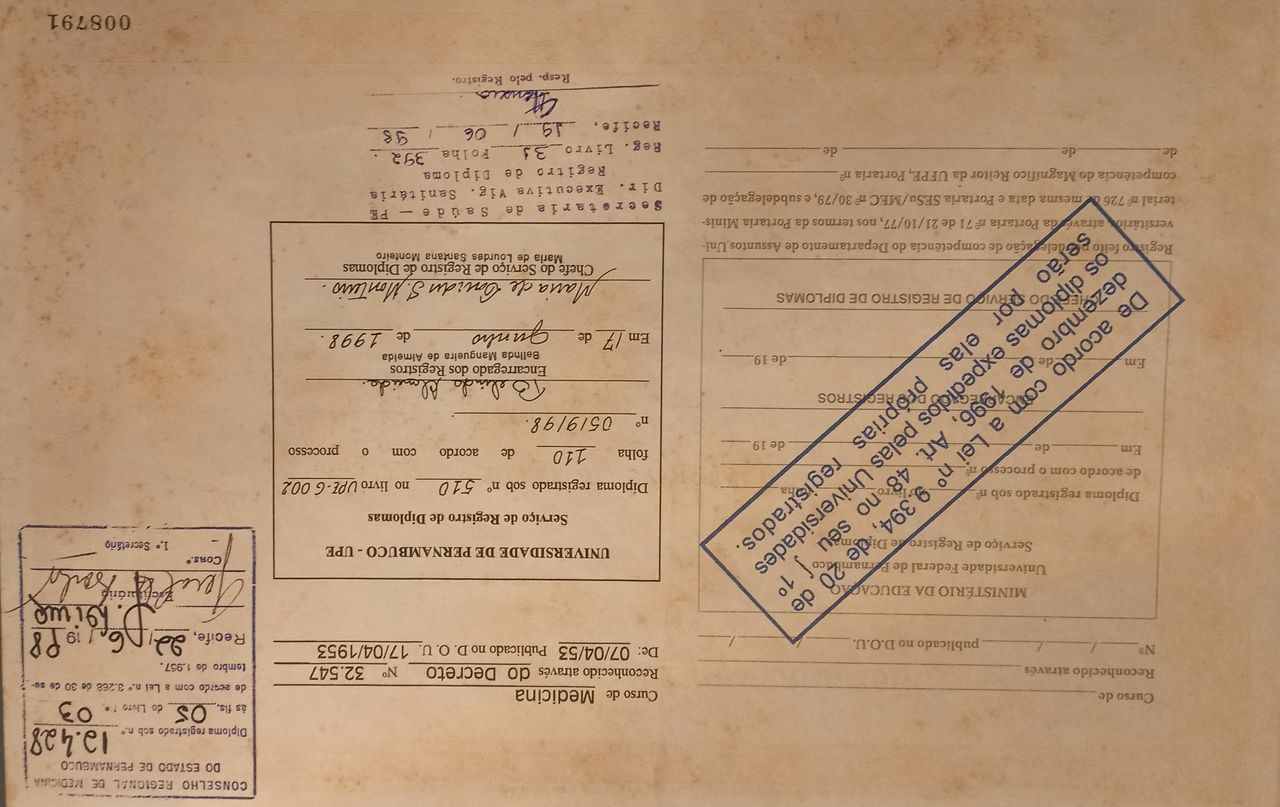 Curso de
Reconhecido através
Nº / / publicado no D.O.U. / /
MINISTÉRIO DA EDUCAÇÃO
Universidade Federal de Pernambuco
Serviço de Registro de Diplomas
Diploma registrado sob nº do livro folha
de acordo com o processo nº
Em de de 19
ENCARREGADO DOS REGISTROS
Em de de 19
CHEFE DO SERVIÇO DE REGISTRO DE DIPLOMAS
Registro feito por delegação de competência do Departamento de Assuntos Uni-
versitários, através da Portaria nº 71 de 21/10/77, nos termos da Portaria Minis-
terial nº 726 de mesma data e Portaria SESu/MEC nº 30/79, e subdelegação de
competência do Magnífico Reitor da UFPE, Portaria nº
de de de
De acordo com a Lei nº 9.394, de 20 de
dezembro de 1996, Art. 48 no seu ∫ 1º
os diplomas expedidos pelas Universidades
serão por elas próprias registrados.
Curso de Medicina
Reconhecido através do Decreto Nº 32.547
De: 07/04/53 Publicado no D. O. U. 17/04/1953
UNIVERSIDADE DE PERNAMBUCO - UPE
Serviço de Registro de Diplomas
Diploma registrado sob nº 510 no livro UPE-G002
folha 110 de acordo com o processo
nº 0519/98.
Belinda Almeida.
Encarregado dos Registros
Belinda Mangueira de Almeida
Em 17 de Junho de 1998.
Maria de Lourdes S. Monteiro.
Chefe do Serviço de Registro de Diplomas
Maria de Lourdes Santana Monteiro
Secretaria de Saúde — PE
Dir. Executiva Vig. Sanitária
Regitro de Diploma
Reg. Livro 31 Folha 392.
Recife, 19 / 06 / 98
Resp. pelo Registro.
CONSELHO REGIONAL DE MEDICINA
DO ESTADO DE PERNAMBUCO
Diploma registrado sob n.º 12.428
às fls. 05 do Livro n.º 03
de acordo com a Lei n.º 3.268 de 30 de se-
tembro de 1.957.
Recife, 22 / 6 / 19 98
Escriturário
Cons.º
1.º Secretário
008791